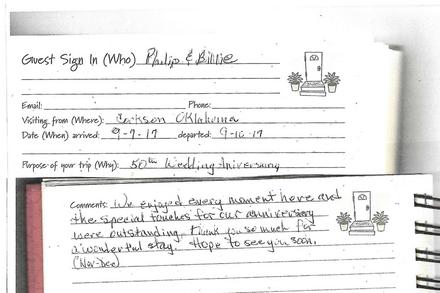 Guest Sign In (Who) Philip & Billie
Email: Phone:
Visiting from (Where): Jackson Oklahoma
Date (When) arrived: 9-7-17 departed: 9-10-17
Purpose of your trip (Why): 50th Wedding Aniversary
Comments: We enjoyed every moment here and
the special touches for our anniversary
were outstanding. Thank you so much for
a wonderful stay. Hope to see you soon.
(Nov-Dec)